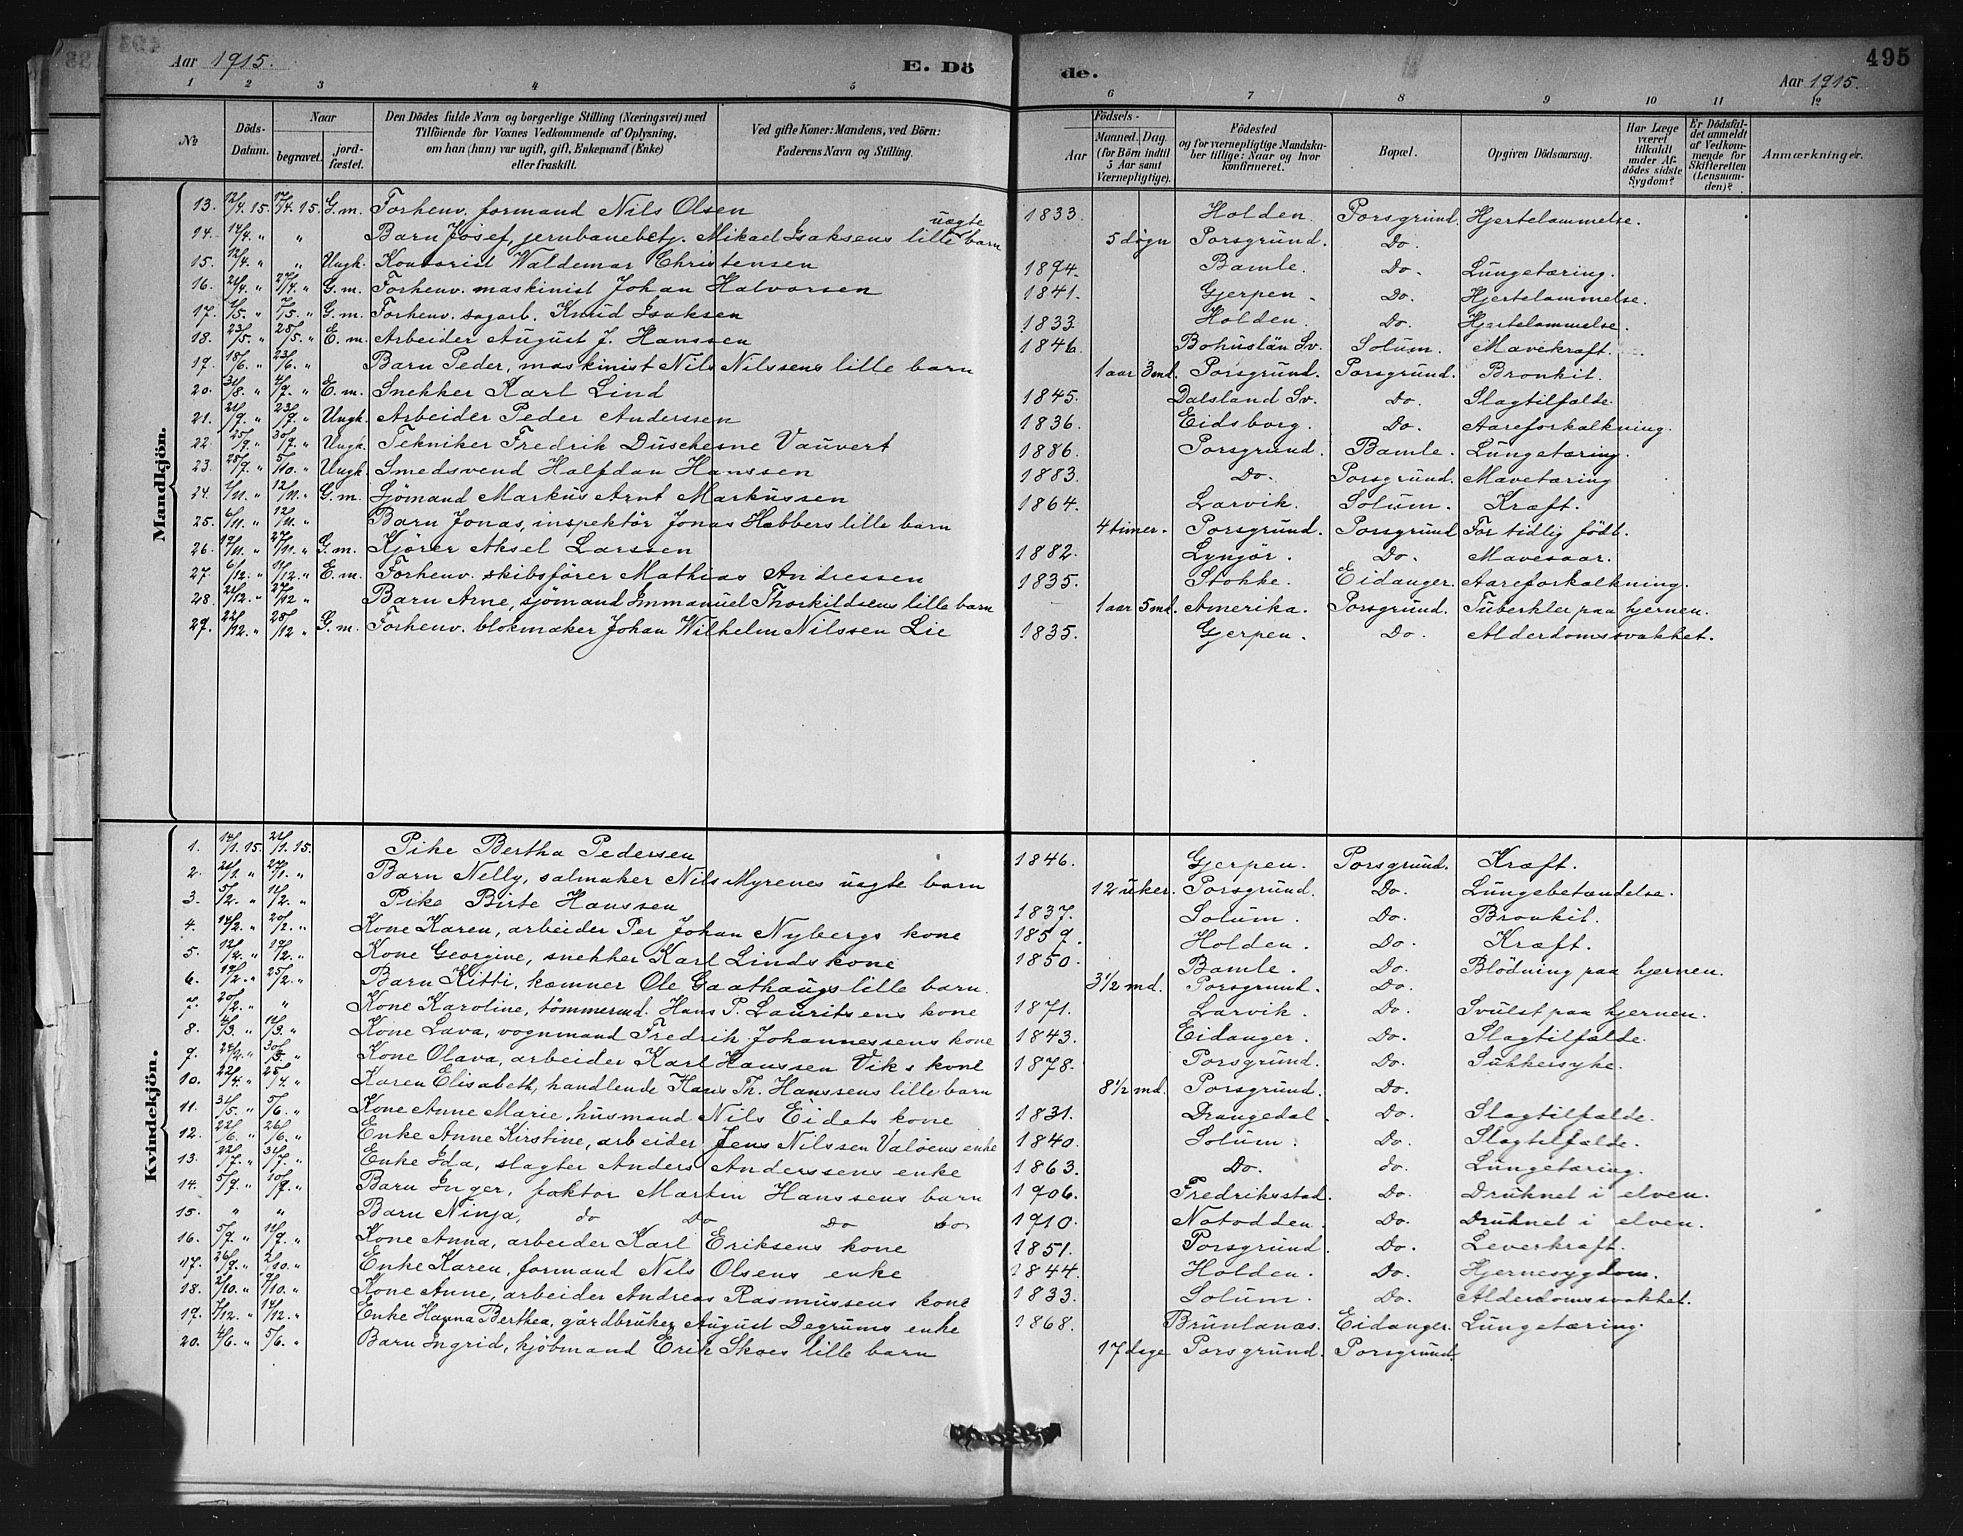 Aar 1915.
E. Dö
de.
495
Aar 1915.
1 2 3 4 5 6 7 8 9 10 11 12
No.
Döds-Datum.
Naar
begravet.
jordfæstet.
Den Dödes fulde Navn og borgerlige Stilling (Næringsvei) med
Tilföiende for Voxnes Vedkommende af Oplysning,
om han (hun) var ugift, gift, Enkemand (Enke)
eller fraskilt.
Ved gifte Koner: Mandens, ved Börn:
Faderens Navn og Stilling.
Födsels-
Aar
Maaned. Dag.
(for Börn indtil
5 Aar samt
Værnepligtige).
Födested
og for værnepligtige Mandska-
ber tillige: Naar og hvor
konfirmeret.
Bopæl.
Opgiven Dödsaarsag.
Har Læge
været
tilkaldt
under Af-
dödes sidste
Sygdom?
Er Dödsfal-
det anmeldt
af Vedkom-
mende for
Skifteretten
(Lensman-
den)?
Anmærkninger.
Mandkjön.
13. 12/4 15. 17/4. 15. G.m. Forhenv. formand Nils Olsen 1833. Holden. Porsgrund. Hjertelammelse.
14. 14/4. " " Barn Josef, jernbanebetj. Mikael Isaksens lille uægte barn 5 døgn Porsgrund. Do.
15. 12/4. " " Ungk. Kontorist Waldemar Christensen 1894. Bamle. Do. Lungetæring.
16. 21/4. " 27/4. " G.m. Forhenv. maskinist Johan Halvorsen 1841. Gjerpen. Do. Hjertelammelse.
17. 1/5. " 7/5. " G.m. Forhenv. sagarb. Knud Isaksen 1833. Holden. Do. Hjertelammelse.
18. 23/5. " 28/5. " E.m. Arbeider August J. Hanssen 1846. Bohuslän Sv. Solum. Mavekræft.
19. 18/6. " 23/6. " Barn Peder, maskinist Nils Nilssens lille barn 1 aar 3 md. Porsgrund. Porsgrund. Bronkit.
20. 31/8. " 4/9. " E.m. Snekker Karl Lind 1845. Dalsland Sv. Do. Slagtilfælde.
21. 21/9. " 23/9. " Ungk. Arbeider Peder Anderssen 1836. Eidsborg. Do. Aareforkalkning.
22. 25/9. " 30/9. " Ungk. Tekniker Fredrik Duschesne Vauvert 1886. Porsgrund. Bamle. Lungetæring.
23. 28/9. " 5/10. " Ungk. Smedsvend Halfdan Hanssen 1883. Do. Porsgrund. Mavetæring
24. 1/11. " 12/11. " G.m. Sjömand Markus Arnt Markussen 1864. Larvik. Solum. Kræft.
25. 6/11. " 12/11. " Barn Jonas, inspektör Jonas Habbers lille barn 4 timer. Porsgrund. Porsgrund For tidlig född.
26. 19/11. " 27/11. " G.m. Kjörer Aksel Larssen 1882. Lyngör. Do. Mavesaar.
27. 6/12. " 11/12. " E.m. Forhenv. skibsförer Mathias Andressen 1835. Stokke. Eidanger. Aareforkalkning.
28. 21/12. " 27/12 " Barn Arne, sjömand Immanuel Thorkildsens lille barn 1 aar 5 md. Amerika. Porsgrund. Tuberkler paa hjernen.
29. 22/12. " 28/12 " G.m. Forhenv. blokmaker Johan Wilhelm Nilssen Lie 1835. Gjerpen. Do. Alderdomssvakhet.
Kvindekjön.
1. 14/1. 15. 21/1. 15. Pike Bertha Pedersen 1846. Gjerpen. Porsgrund. Kræft.
2. 21/1. " 27/1. " Barn Nelly, salmaker Nils Myrenes uægte barn 12 uker. Porsgrund. Do. Lungebetændelse.
3. 5/2. " 11/2. " Pike Birte Hanssen 1837. Solum. Do. Bronkit.
4. 14/2. " 20/2. " Kone Karen, arbeider Per Johan Nybergs kone 1859. Holden. Do. Kræft.
5. 12/2. " 19/2. " Kone Georgine, snekker Karl Linds kone 1850. Bamle. Do. Blödning paa hjernen.
6. 19/2. " 25/2. " Barn Kitti, kæmner Ole Gaathaugs lille barn. 3 1/2 md. Porsgrund. Do.
7. 20/2. " " Kone Karoline, tömmermd. Hans P. Lauritsens kone 1871. Larvik. Do. Svulst paa hjernen.
8. 4/3. " 11/3. " Kone Lava, vognmand Fredrik Johannessens kone 1843. Eidanger. Do. Slagtilfælde.
9. 24/2. " 30/3. " Kone Olava, arbeider Karl Hanssen Viks kone 1878. Porsgrund. Do. Sukkersyke.
10. 22/4. " 25/4. " Karen Elisabeth, handlende Hans Th. Hanssens lille barn 8 1/2 md. Porsgrund. Do.
11. 31/5. " 5/6. " Kone Anne Marie, husmand Nils Eidets kone 1831. Drangedal. Do. Slagtilfælde.
12. 22/6. " 26/6. " Enke Anne Kirstine, arbeider Jens Nilssen Valöens enke 1840. Solum. Do. Slagtilfælde.
13. 22/7. " 31/7. " Enke Ida, slagter Anders Anderssens enke 1863. Do. do. Lungetæring.
14. 5/9. " 10/9. " Barn Inger, faktor Martin Hanssens barn 1906. Fredriksstad. Do. Druknet i elven.
15. " " Barn Ninja, do Do Do Do 1910. Notodden. Do. Druknet i elven.
16. 5/9. " 11/9. " Kone Anna, arbeider Karl Eriksens kone 1851. Porsgrund. Do. Leverkræft.
17. 26/9. " 2/10. " Enke Karen, formand Nils Olsens enke 1844. Holden. Do. Hjernesygdom.
18. 2/10. " 9/10. " Kone Anne, arbeider Andreas Rasmussens kone 1833. Solum. Do. Alderdomssvakhet.
19. 7/12. " 14/12. " Enke Hanna Berthea, gårdbruker August Degrums enke 1868. Brunlanæs. Eidanger. Lungetæring.
20. 4/6. " 5/6. " Barn Ingrid, kjöbmand Erik Skoes lille barn 17 dage Porsgrund. Porsgrund.